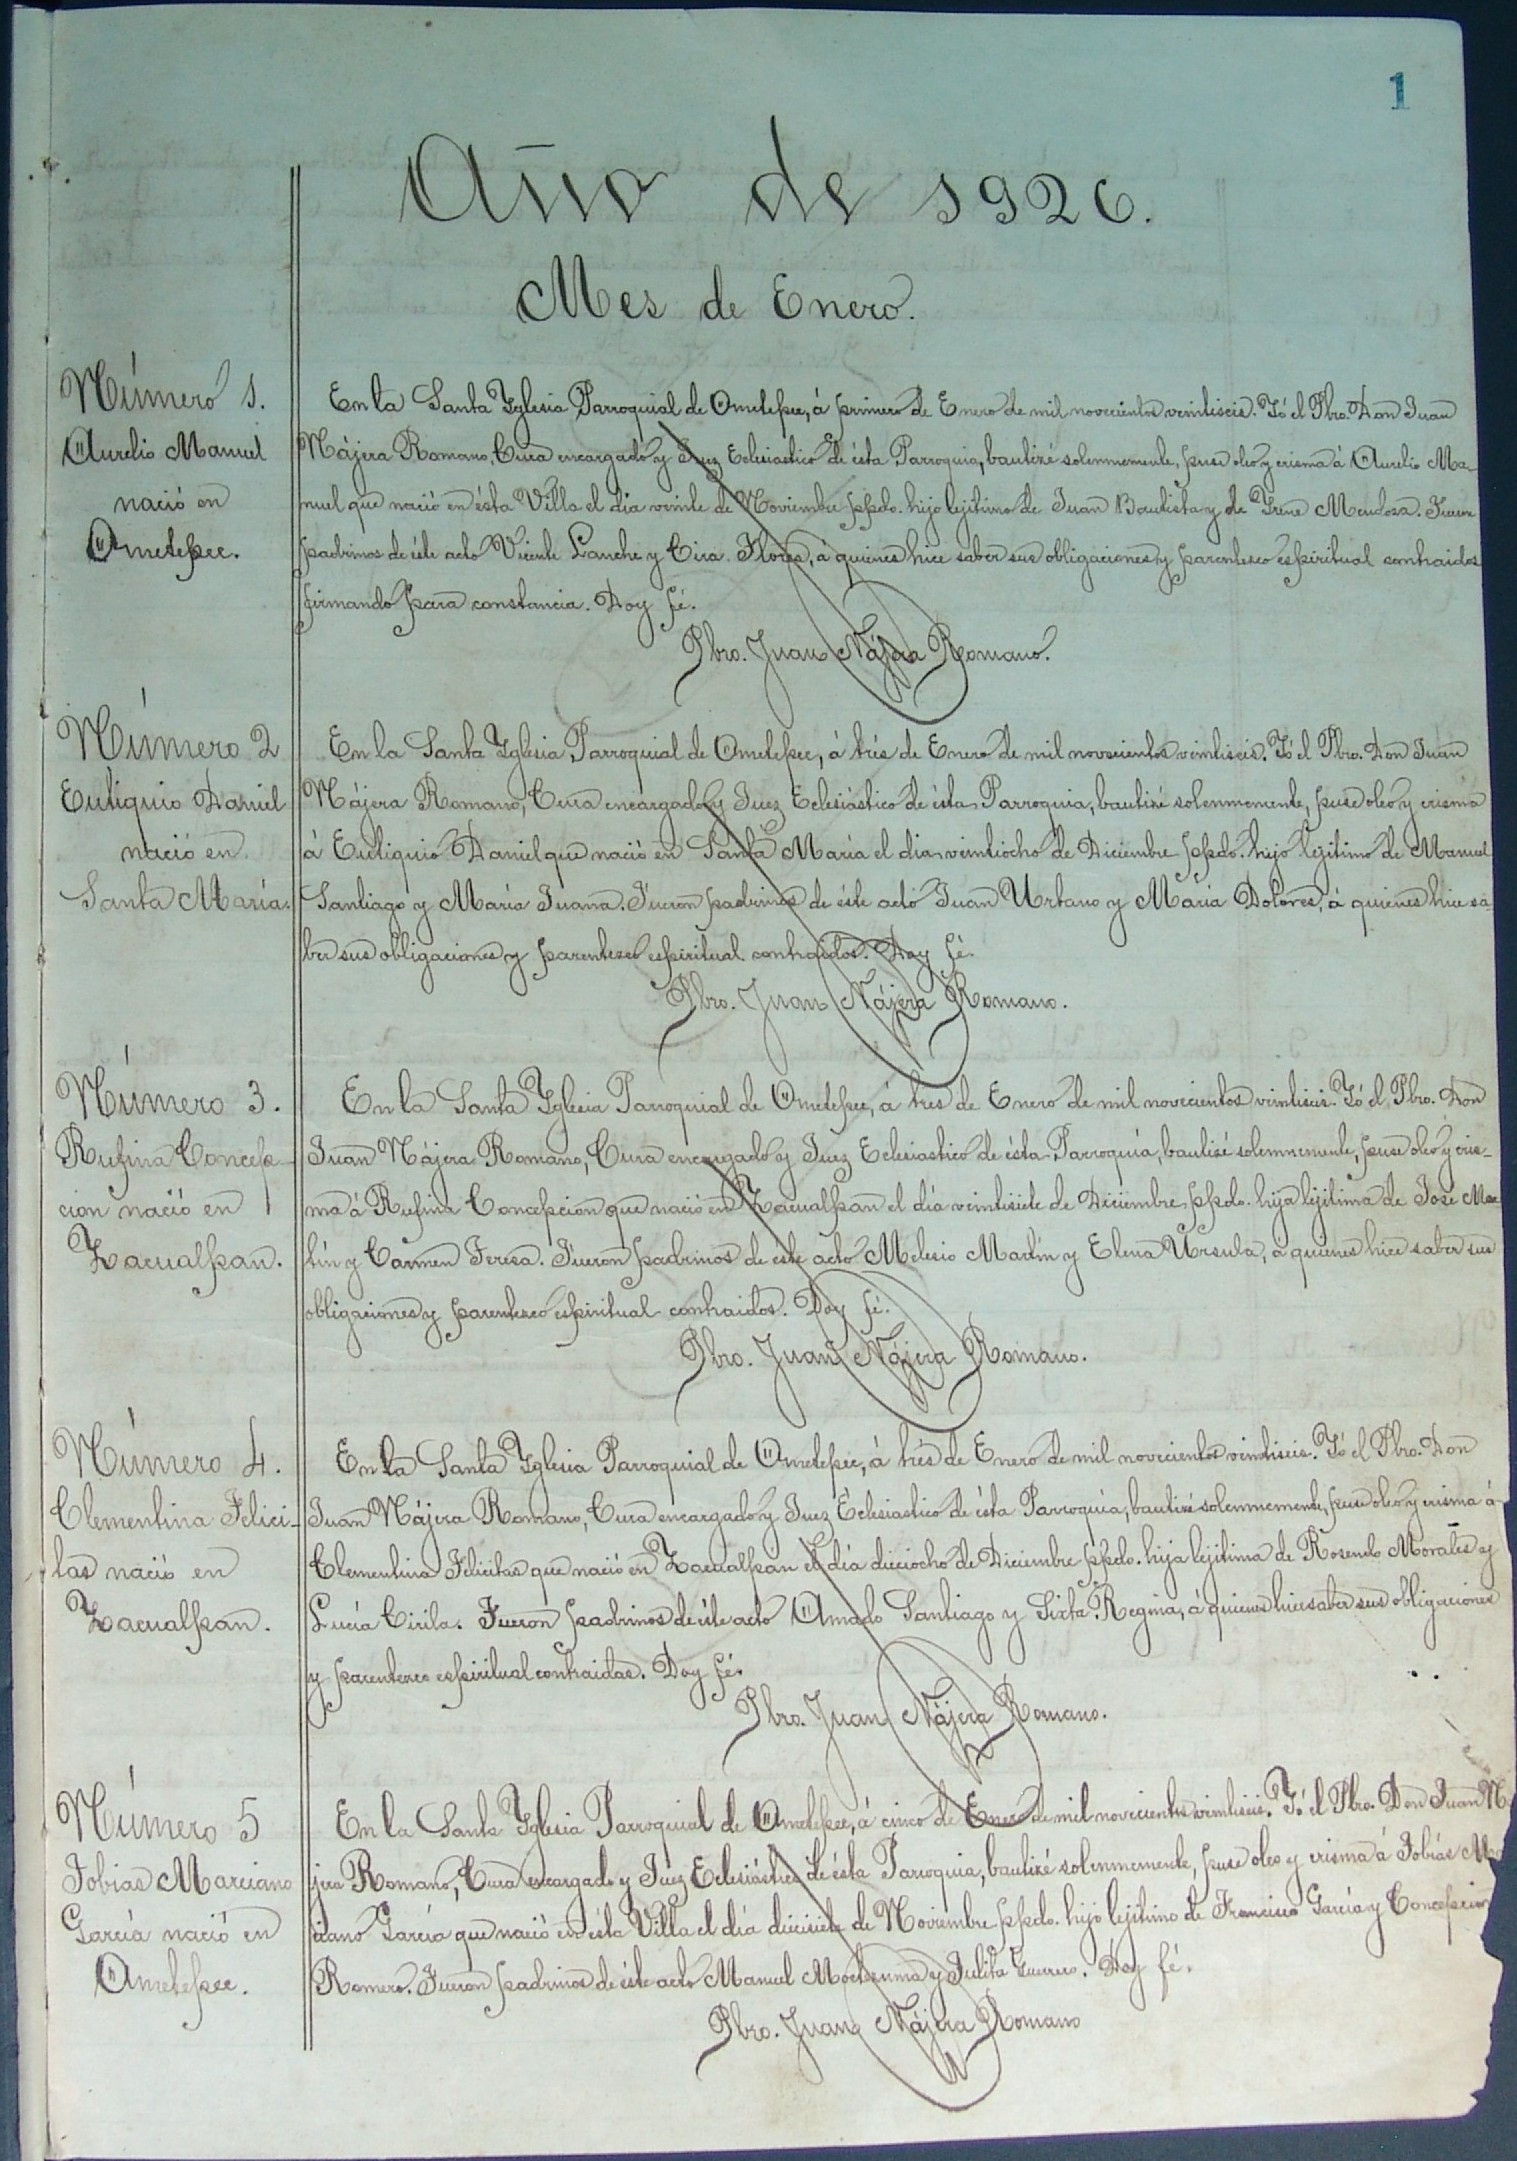 1
Año de 1926.
Mes de Enero.
Número 1.
Aurelio Manuel
nació en
Ometepec.
En la Santa Yglesia Parroquial de Ometepec, á primero de Enero de mil novecientos veintiseis. Yó el Pbro. Don Juan
Nájera Romano, Cura encargado y Juez Eclesiastico de ésta Parroquia, bautizé solemnemente, puse oleo y crisma á Aurelio Ma-
nuel que nació en ésta Villa el día veinte de Noviembre ppdo. hijo lejitimo de Juan Bautista y de Yrene Mendoza. Fueron
padrinos de éste acto Vicente Lanche y Cira Flores, á quienes hice saber sus obligaciones y parentesco espiritual contraidos
firmando para constancia. Doy fé.
Pbro. Juan Nájera Romano.
Número 2
Eutiquio Daniel
nació en
Santa María.
En la Santa Yglesia Parroquial de Ometepec, á trés de Enero de mil novecientos veintiseis. Yó el Pbro. Don Juan
Nájera Romano, Cura encargado y Juez Eclesiástico de ésta Parroquia, bautizé solemnemente, puse oleo y crisma
á Eutiquio Daniel que nació en Santa María el dia veintiocho de Diciembre ppdo. hijo lejitimo de Manuel
Santiago y María Juana. Fueron padrinos de éste acto Juan Urbano y María Dolores, á quienes hice sa-
ber sus obligaciones y parentezco espiritual contraidos. Doy fé.
Pbro. Juan Nájera Romano.
Número 3.
Rufina Concep-
cion nació en
Zacualpan.
En la Santa Yglesia Parroquial de Ometepec, á tres de Enero de mil novecientos veintiseis. Yó el Pbro. Don
Juan Nájera Romano, Cura encargado y Juez Eclesiastico de ésta Parroquia, bautizé solemnemente, puse oleo y cris-
ma á Rufina Concepcion que nació en Zacualpan el día veintisiete de Diciembre ppdo. hija lejitima de José Mar
tín y Carmen Teresa. Fueron padrinos de este acto Melesio Martín y Elena Ursula, a quienes hice saber sus
obligaciones y parentezco espiritual contraidos. Doy fé.
Pbro. Juan Nájera Romano.
Número 4.
Clementina Felici-
tas nació en
Zacualpan.
En la Santa Yglesia Parroquial de Ometepec, á trés de Enero de mil novecientos veintiseis. Yó el Pbro. Don
Juan Nájera Romano, Cura encargado y Juez Eclesiastico de ésta Parroquia, bautizé solemnemente, puse oleo y crisma á
Clementina Felicitas que nació en Zacualpan el día dieciocho de Diciembre ppdo. hija lejitima de Rosendo Morales y
Lucía Cirila. Fueron padrinos de éste acto Amado Santiago y Sixta Regina, á quienes hice saber sus obligaciones
y parentezco espiritual contraidas. Doy fé.
Pbro. Juan Nájera Romano.
Número 5
Tobias Marciano
García nació en
Ometepec.
En la Santa Yglesia Parroquial de Ometepec, á cinco de Enero de mil novecientos veintiseis. Yó el Pbro. Don Juan Ná
jera Romano, Cura encargado y Juéz Eclesiástico de ésta Parroquia, bautizé solemnemente, puse oleo y crisma á Tobías Mar
ciano García que nació en ésta Villa el día diecisiete de Noviembre ppdo. hijo lejitimo de Francisco García y Concepcion
Romero. Fueron padrinos de éste acto Manuel Moctezuma y Julita Guerrero. Doy fé.
Pbro. Juan Nájera Romano